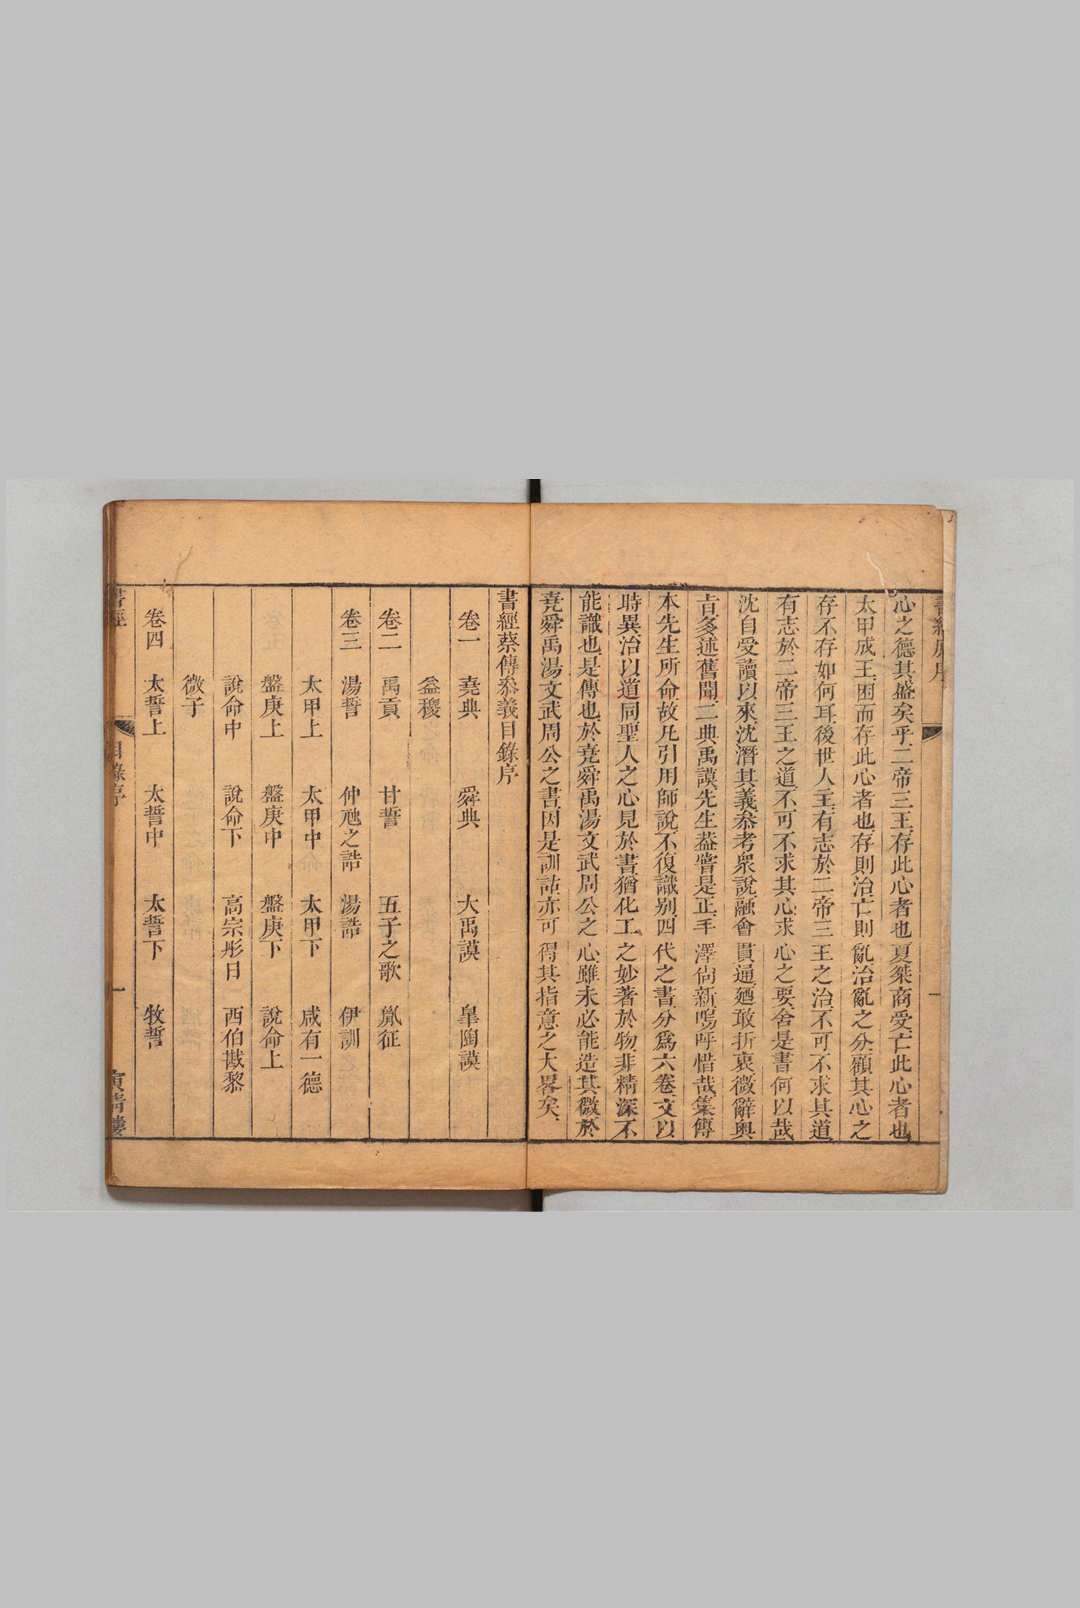 心之德其盛矣乎二帝三王存此心者也夏桀商受亡此心者也
太甲成王困而存此心者也存則治亡則亂治亂之分顧其心之
存不存如何耳後世人主有志於二帝三王之治不可不求其道
有志於二帝三王之道不可不求其心求心之要舍是書何以哉
沈自受讀以來沈潛其義叅考衆說融會貫通廼敢折衷微辭奥
㫖多述舊聞二典禹謨先生葢嘗是正手澤尙新嗚呼惜哉集傳
本先生所命故凡引用師說不復識别四代之書分爲六卷文以
時異治以道同聖人之心見於書猶化工之妙著於物非精深不
能識也是傳也於堯舜禹湯文武周公之心雖未必能造其微於
堯舜禹湯文武周公之書因是訓詁亦可得其指意之大畧矣
書經蔡傳叅義目錄序
卷一 堯典 舜典 大禹謨 皐陶謨
益稷
卷二 禹貢 甘誓 五子之歌 胤征
卷三 湯誓 仲虺之誥 湯誥 伊訓
太甲上 太甲中 太甲下 咸有一德
盤庚上 盤庚中 盤庚下 說命上
說命中 說命下 高宗肜日 西伯戡黎
微子
卷四 太誓上 太誓中 太誓下 牧誓
書經 目錄序 一